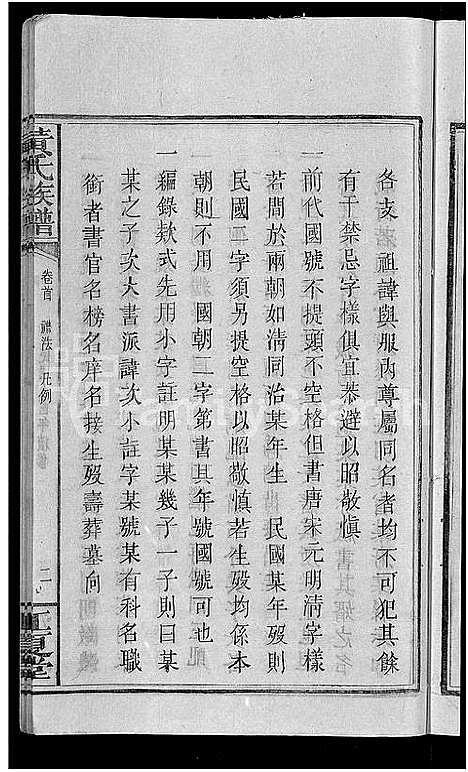 各支 祖諱與服內尊屬同名者均不可犯其餘
有干禁忌字樣俱宜恭避以昭敬慎
一前代國號不提頭不空格但書唐宋元明清字樣
若間於兩朝如清同治某年生 民國某年歿則
民國二字須另提空格以昭敬慎若生歿均係本
朝則不用 國朝二字第書其年號國號可也
一編錄欵式先用小字註明某某幾子一子則曰某
某之子次大書派諱次小註字某號某有科名職
銜者書官名榜名庠名接生歿壽葬墓向
黃氏族譜
卷首 譜法 凡例
二